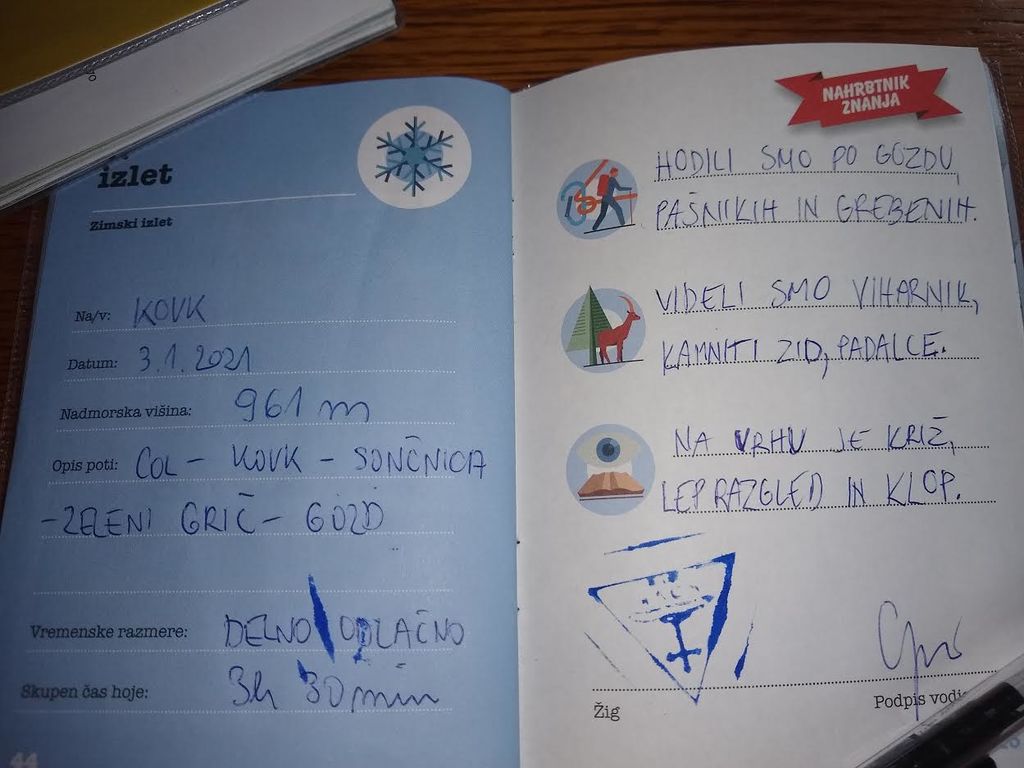 izlet
Zimski izlet
Na/v: KOVK
Datum: 3.1.2021
Nadmorska višina: 961 m
Opis poti: COL – KOVK – SONČNICA
– ZELENI GRIČ – GOZD
Vremenske razmere: DELNO OBLAČNO
Skupen čas hoje: 3h 30 min
44
NAHRBTNIK
ZNANJA
HODILI SMO PO GOZDU,
PAŠNIKIH IN GREBENIH.
VIDELI SMO VIHARNIK,
KAMNITI ZID, PADALCE.
NA VRHU JE KRIŽ,
LEP RAZGLED IN KLOP.
Žig
Podpis